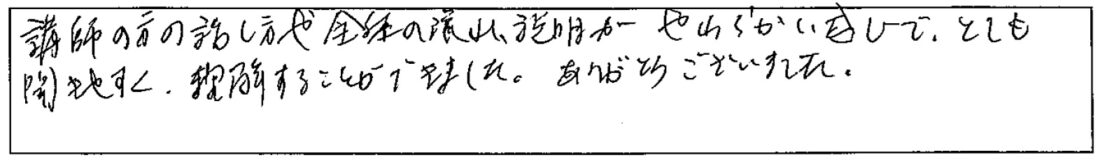 講師の方の話し方や全体の流れ、説明が やわらかい感じで、とても
聞きやすく、理解することができました。 ありがとうございました。